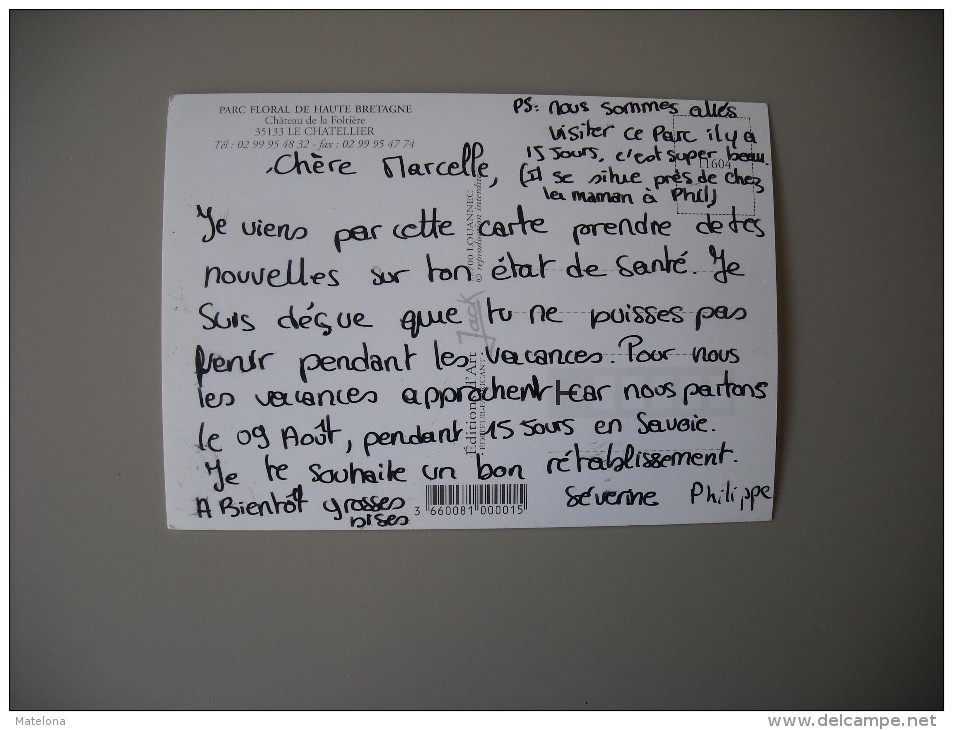 PARC FLORAL DE HAUTE BRETAGNE
Château de la Foltière
35133 LE CHATELLIER
Tél : 02 99 95 48 32 - fax : 02 99 95 47 74
PS: nous sommes allés
visiter ce Parc il y a
15 Jours, c'est super beau.
11604
(Il se situe près de chez
la maman à Phil)
Chère Marcelle,
Je viens par cette carte prendre de tes
nouvelles sur ton état de santé. Je
suis déçue que tu ne puisses pas
venir pendant les vacances. Pour nous
les vacances approchent car nous partons
le 09 Août, pendant 15 Jours en Savoie.
Je te souhaite un bon rétablissement.
A Bientôt grosses
bises
Séverine Philippe
Éditions d'Art Jack
LOUANNEC
© reproduction interdite
3 660081 000015
Matelona
www.delcampe.net